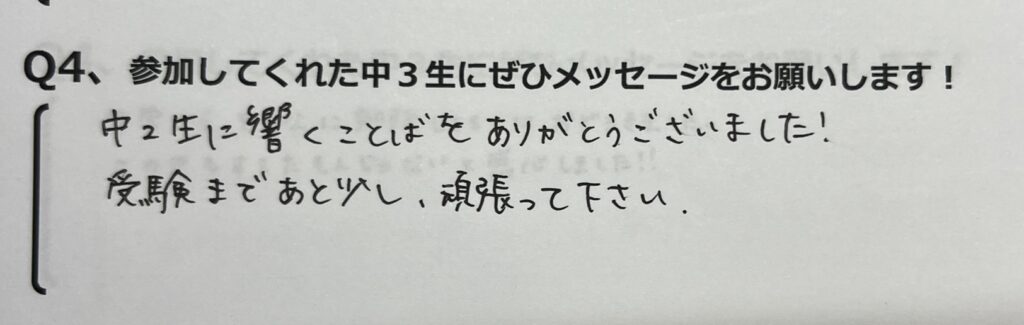 Q4、参加してくれた中３生にぜひメッセージをお願いします！
中2生に響くことばをありがとうございました!
受験まであと少し、頑張って下さい.